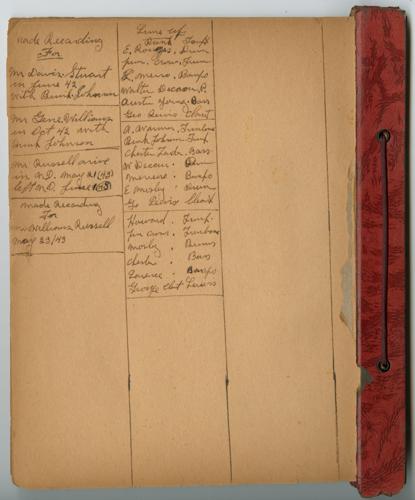 made Recording
For
Mr Davis. Stuart
in June 42
with Bunk. Johnson
Mr Gene. Williams
in Oct 42 with
Bunk Johnson
Mr Russell arive
in N.O. May 21 (43)
left N.O. June 1 (43)
made Recording
For
Mr Williams Russell
May 23/43
Line up
Bunk Trup
E. Rogers, Drum
Jim. Crow.
L. Marro, Banjo
Walter Decaou P.
Austin Young. Bass
Geo Lewis Claret
A. Avarins, Trombone
Bunk Johnson Trup
Chester Zadis. Bass
W Decou.
Banjo
E Mosby. Drum
Ge Lewis Claret
Howard. Trup.
Jim. Trombone
Mosby. Drums
Chester Bass
Larence. Banjo
George Claret Lewis